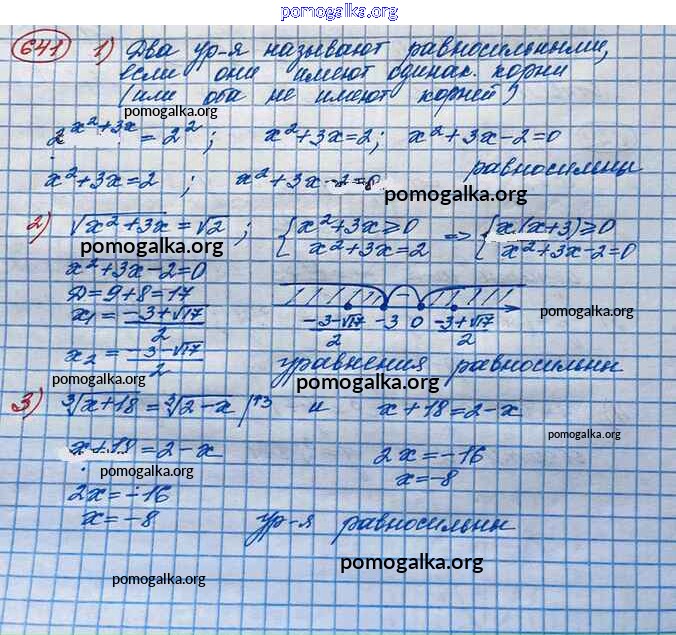 pomogalka.org
641 1) Два ур-я называют равносильными,
если они имеют одинак. корни
(или оба не имеют корней)
pomogalka.org
2^(x²+3x) = 2²; x²+3x=2; x²+3x-2=0
равносильны
x²+3x=2 ; x²+3x-2=0
pomogalka.org
2) √(x²+3x) = √2; {x²+3x≥0 => {x(x+3)≥0
x²+3x=2 x²+3x-2=0
pomogalka.org
x²+3x-2=0
Д=9+8=17
x₁ = (-3+√17)/2
(-3-√17)/2 -3 - 0 (-3+√17)/2
pomogalka.org
x₂ = (-3-√17)/2
уравнения равносильны
pomogalka.org
pomogalka.org
3) ∛(x+18) = ∛(2-x) |↑3 и x+18=2-x
pomogalka.org
x+18=2-x 2x=-16
pomogalka.org
x=-8
2x=-16
x=-8 ур-я равносильны
pomogalka.org
pomogalka.org